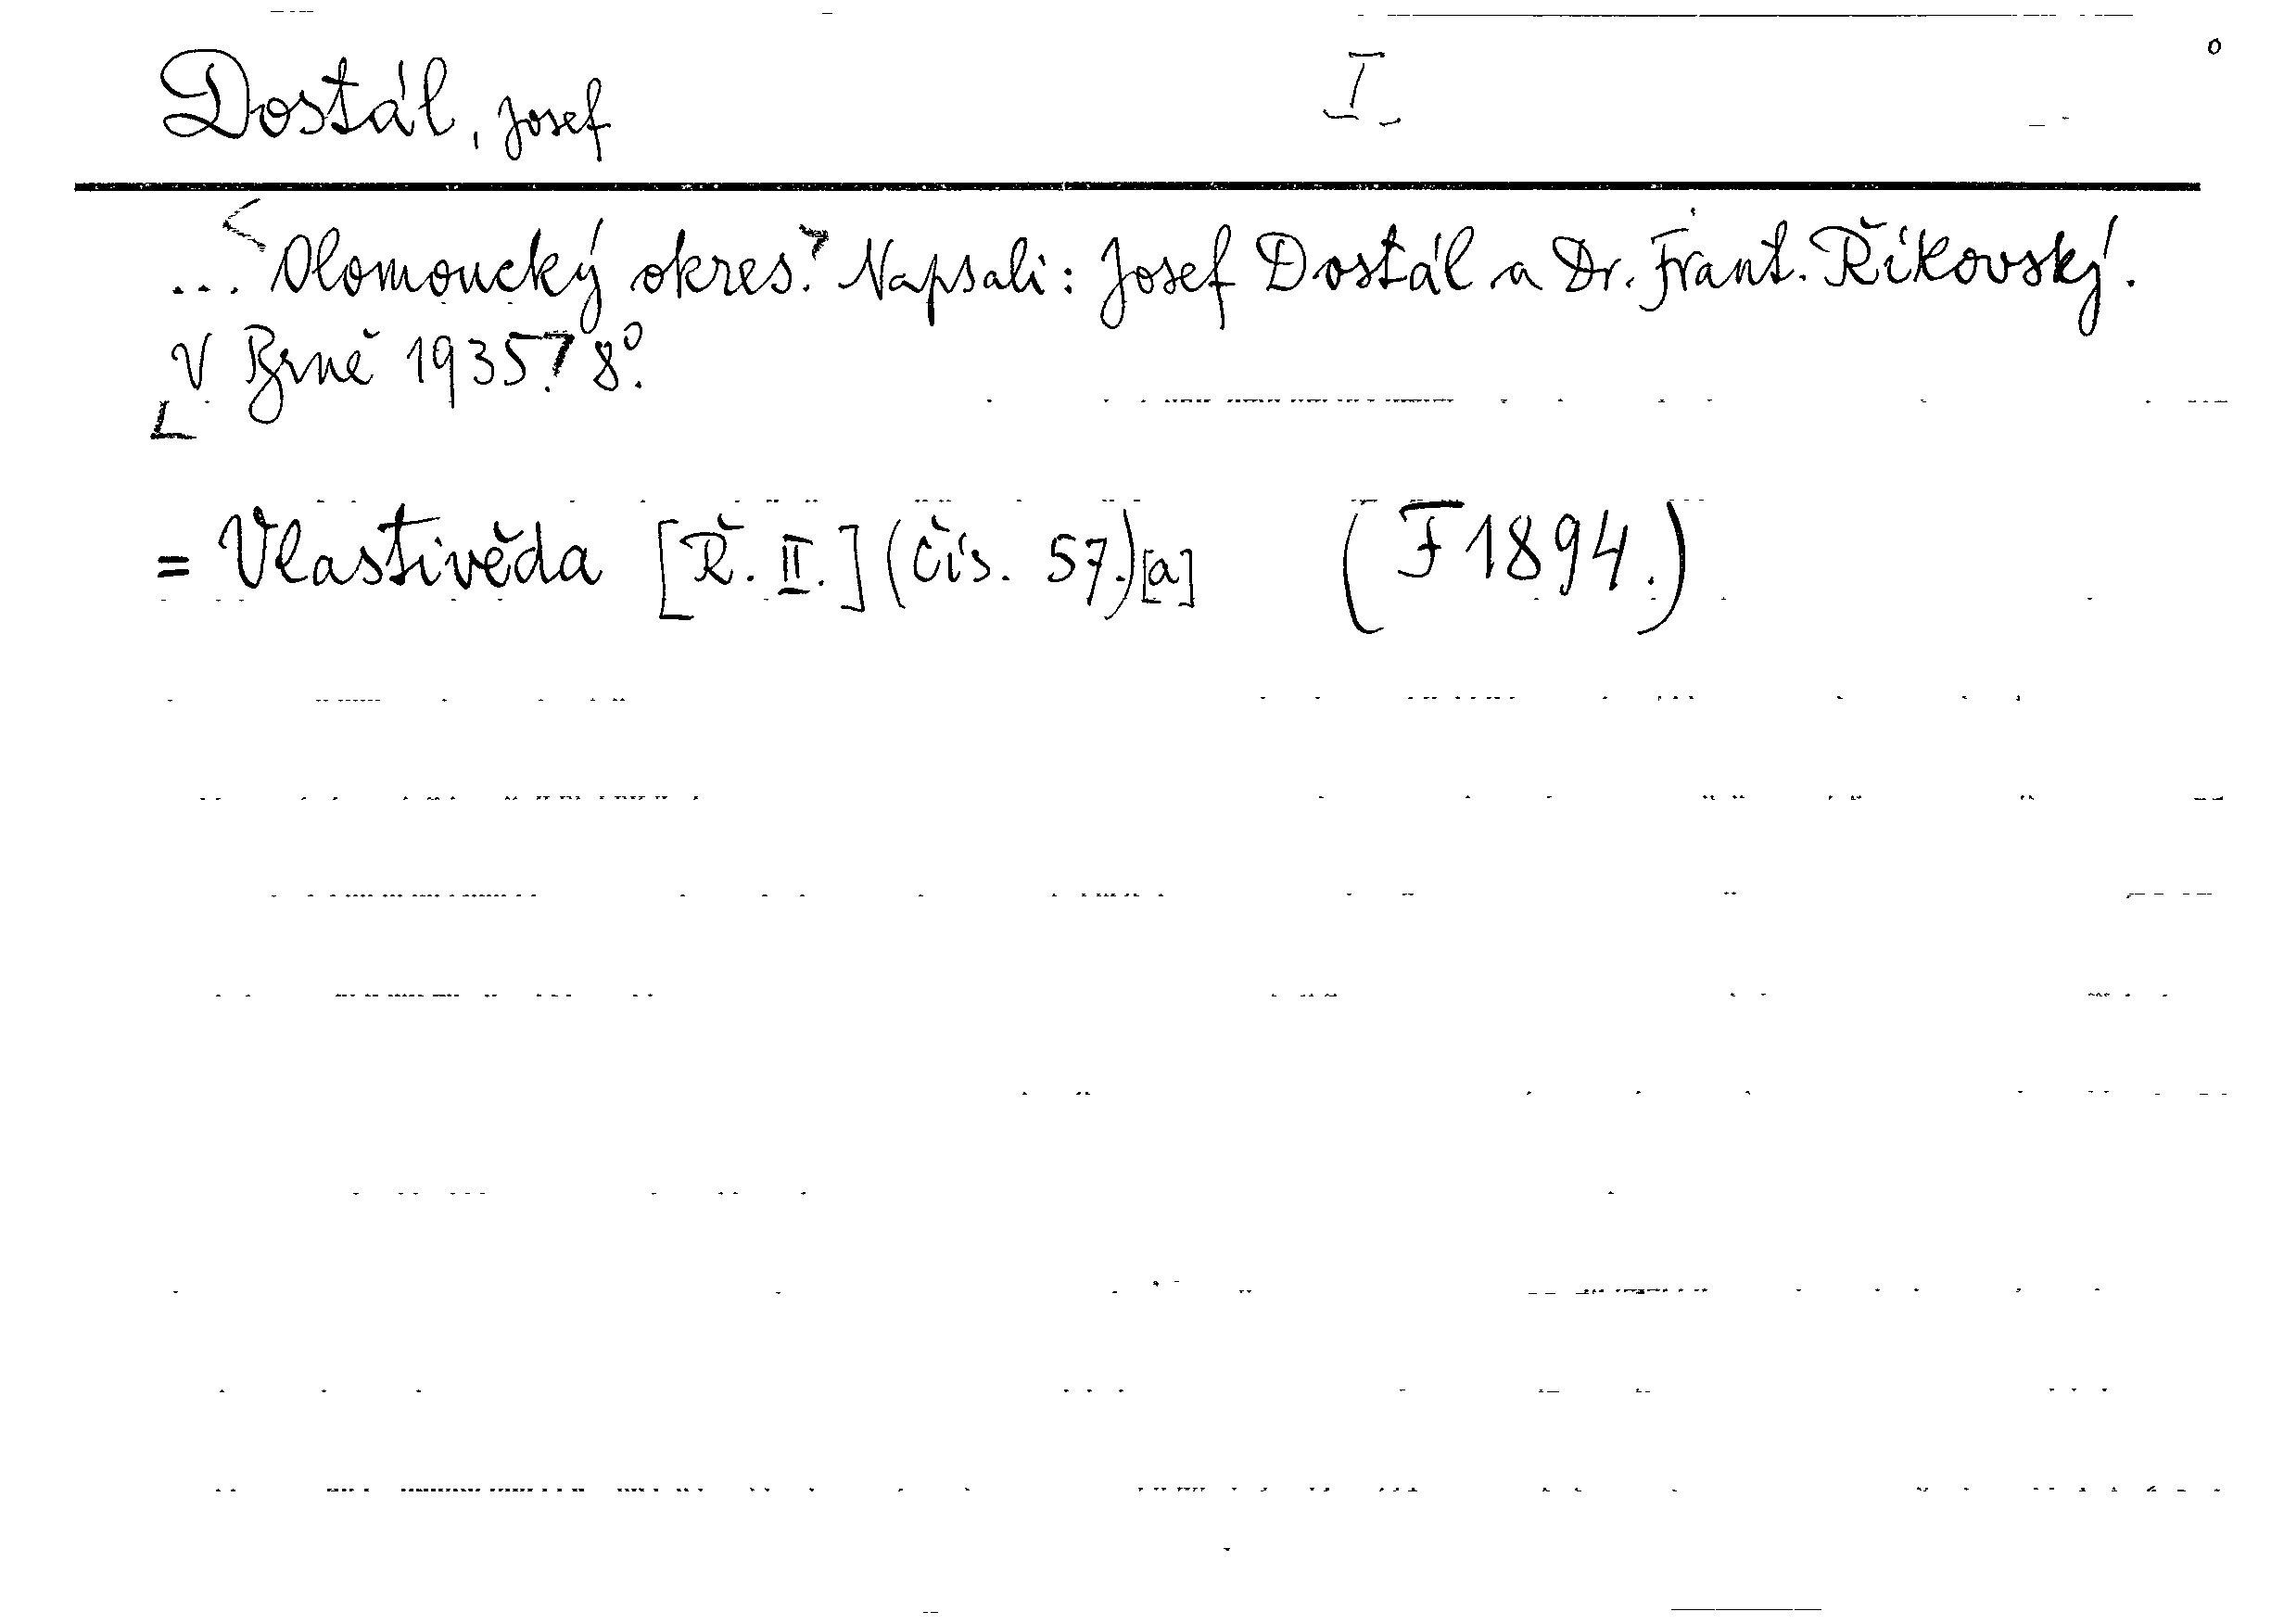 Dostál, Josef I.
... <Olomoucký okres.> Napsali: Josef Dostál a Dr. Frant. Říkovský.
V Brně 1935. 8°.
= Vlastivěda [Ř. II.] (čís. 57.)[a] (F 1894.)